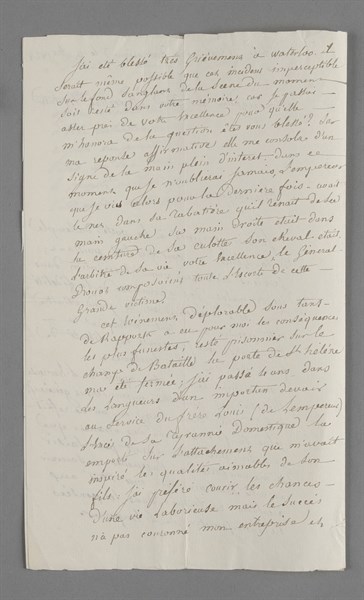 j'ai été blessé très Grièvement à waterloo. il
serait même possible que cet incident imperceptible
sur le fond sanglant de la scène du moment
soit resté dans votre mémoire, car je passai
assez près de votre Excellence pour qu'elle
m'honora de la question êtes vous blessé? sur
ma reponse affirmative elle me consola d'un
signe de la main plein d'interet - dans ce
moment que je n'oublierai jamais, l'empereur
que je vis alors pour la dernière fois - avait
le nez dans sa tabatière qu'il tenait de la
main gauche sa main droite était dans
la ceinture de sa culotte son cheval était
l'arbitre de sa vie votre Excellence, le Général
composaient toute l'escorte de cette -
Grande victime.
cet évènement déplorable sous tans -
de Rapports a eu pour moi les conséquences
les plus funestes, resté prisonnier sur le
champ de Bataille la porte de Ste hélène
m'a été fermée; j'ai passé 10 ans dans
les langueurs d'un importun devoir
au service du frère Louis (de l'empereur)
de sa tyrannie Domestique l'a
emporté sur l'attachement que m'avait
inspiré les qualités aimables de son
fils. j'ai préféré courir les chances -
d'une vie Laborieuse mais le succès
n'a pas couronné mon entreprise et,